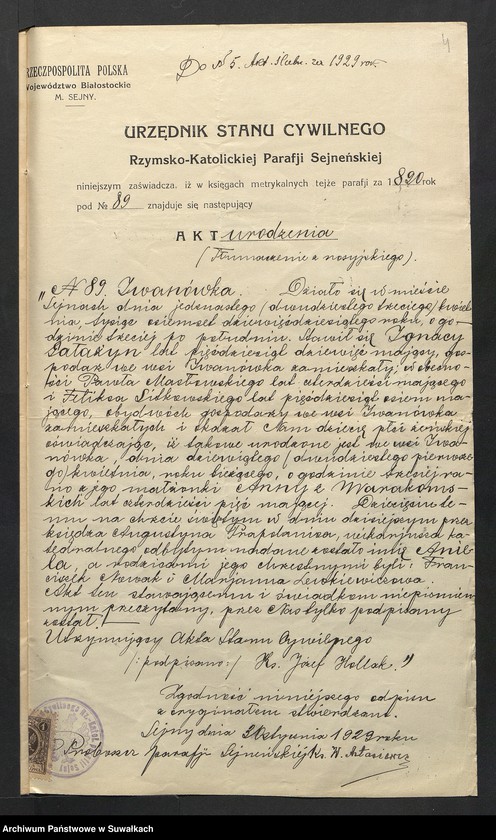 4
Do № 5. Akt. Ślub. za 1929 rok.
RZECZPOSPOLITA POLSKA
Województwo Białostockie
M. SEJNY.
URZĘDNIK STANU CYWILNEGO
Rzymsko-Katolickiej Parafji Sejneńskiej
niniejszym zaświadcza, iż w księgach metrykalnych tejże parafji za 1890 rok
pod № 89 znajduje się następujący
AKT urodzenia
(Tłumaczenie z rosyjskiego).
„№ 89. Iwanówka. Działo się w mieście
Sejnach dnia jedenastego (dwudziestego trzeciego) kwiet-
nia, tysiąc osiemset dziewięćdziesiątego roku, o go-
dzinie trzeciej po południu. Stawił się Ignacy
lat pięćdziesiąt dziewięć mający, gos-
podarz we wsi Iwanówka zamieszkały; w obecno-
ści Pawła Masłowskiego lat czterdzieści mającego
i Feliksa Sitkowskiego lat pięćdziesiąt osiem ma-
jącego, obydwóch gospodarzy we wsi Iwanówka
zamieszkałych i okazał Nam dziecię płci żeńskiej
oświadczając, iż takowe urodzone jest we wsi Iwa-
nówka, dnia dziewiątego (dwudziestego pierwsze-
go) kwietnia, roku bieżącego, o godzinie trzeciej ra-
no z jego małżonki Anny z Marakows-
kich lat czterdzieści pięć mającej. Dziecięciu te-
mu na chrzcie świętym w dniu dzisiejszym przez
księdza Augustyna wikarjusza ka-
tedralnego odbytym nadane zostało imię Anie-
la, a rodzicami jego chrzestnymi byli: Fran-
ciszek Nowak i Marjanna Lewkiewiczowa.
Akt ten stawającemu i świadkom niepiśmien-
nym przeczytany, przez Nas tylko podpisany
został.
Utrzymujący Akta Stanu Cywilnego
/:podpisano:/ Ks. Józef Hollak."
Zgodność niniejszego odpisu
z oryginałem stwierdzam.
Sejny dnia stycznia 1929 roku
Proboszcz parafji Sejneńskiej Ks. W.
Archiwum Państwowe w Suwałkach